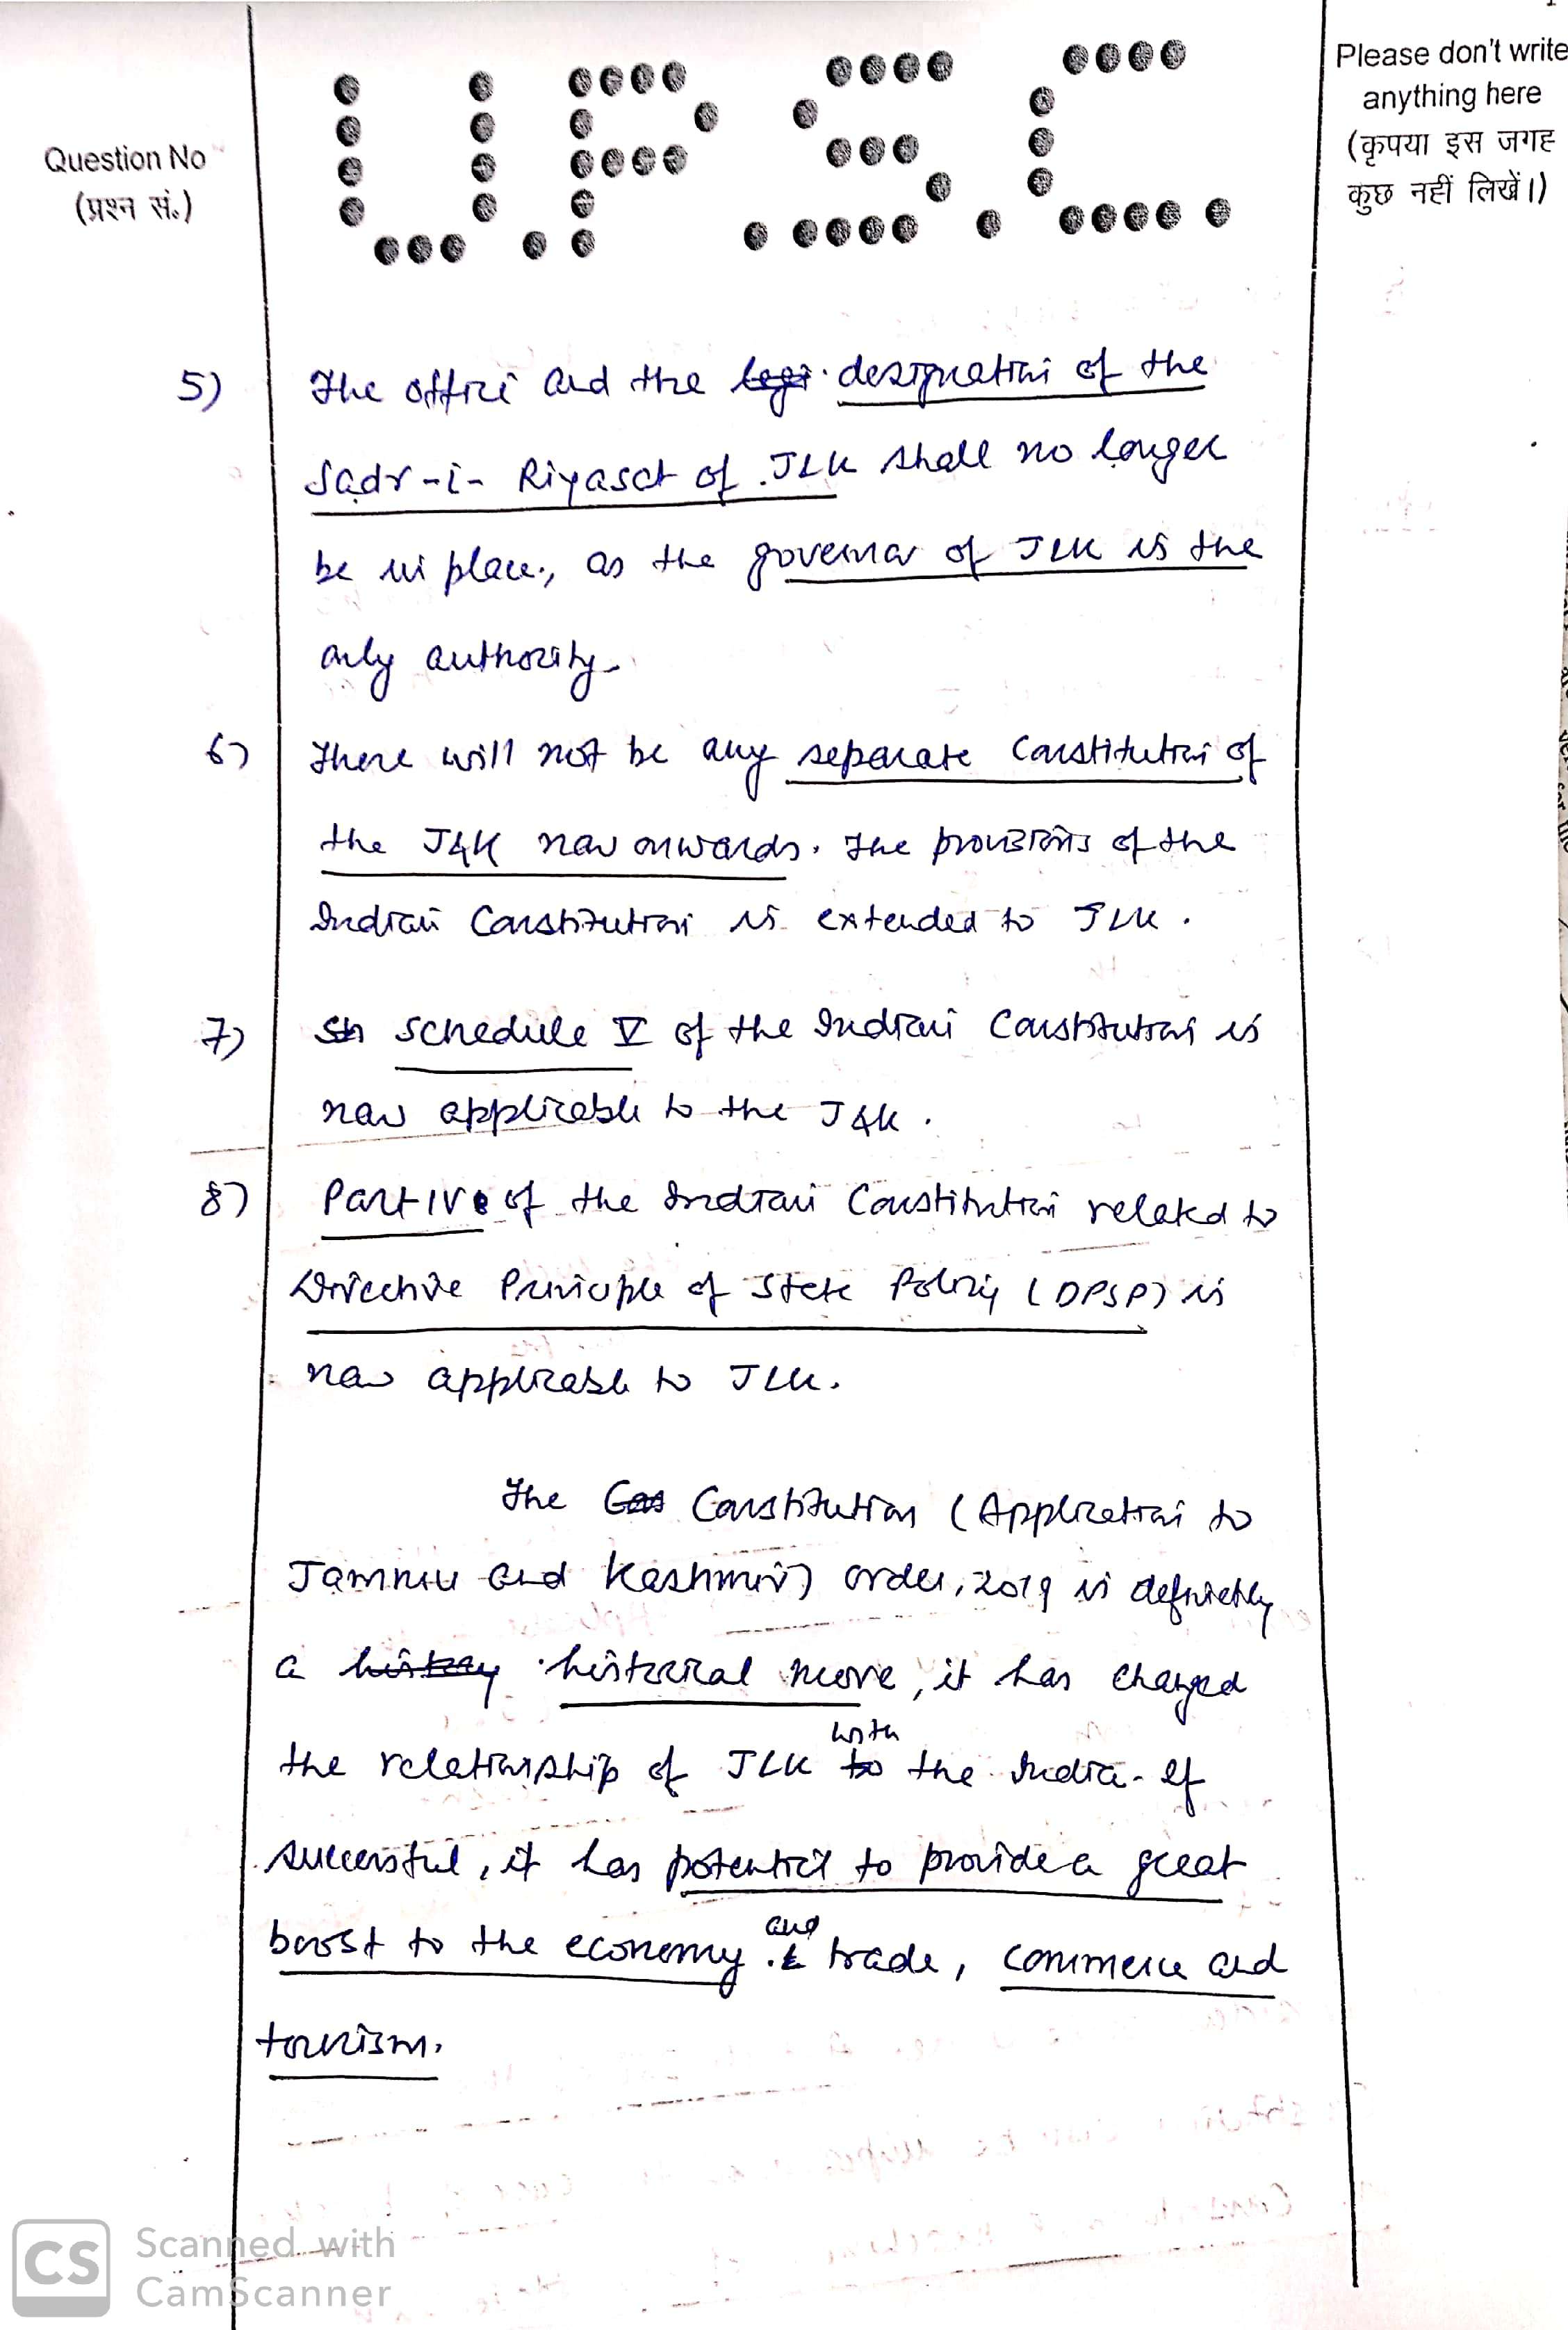 UPSC
Question No
(प्रश्न सं.)
Please don't write
anything here
(कृपया इस जगह
कुछ नहीं लिखें।)
5) The office and the legi designation of the
Sadr-i- Riyasat of J&K shall no longer
be in place, as the governor of J&K is the
only authority.
6) There will not be any separate Constitution of
the J&K now onwards. The provisions of the
Indian Constitution is extended to J&K.
7) Sh Schedule V of the Indian Constitution is
now applicable to the J&K.
8) Part IV of the Indian Constitution related to
Directive Principle of State Policy (DPSP) is
now applicable to J&K.
The Cos Constitution (Application to
Jammu and Kashmir) order, 2019 is definitely
a history historical move, it has changed
the relationship of J&K to with the India. If
successful, it has potential to provide a great
boost to the economy & and trade, commerce and
tourism.
CS Scanned with
CamScanner